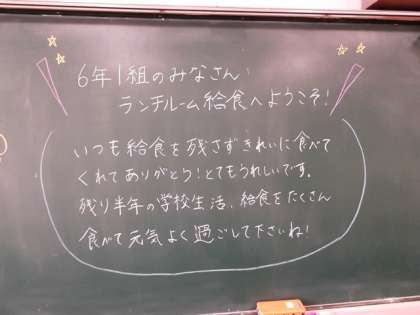 6年1組のみなさん
ランチルーム給食へようこそ!
いつも給食を残さずきれいに食べて
くれてありがとう!とてもうれしいです。
残り半年の学校生活、給食をたくさん
食べて元気よく過ごして下さいね!